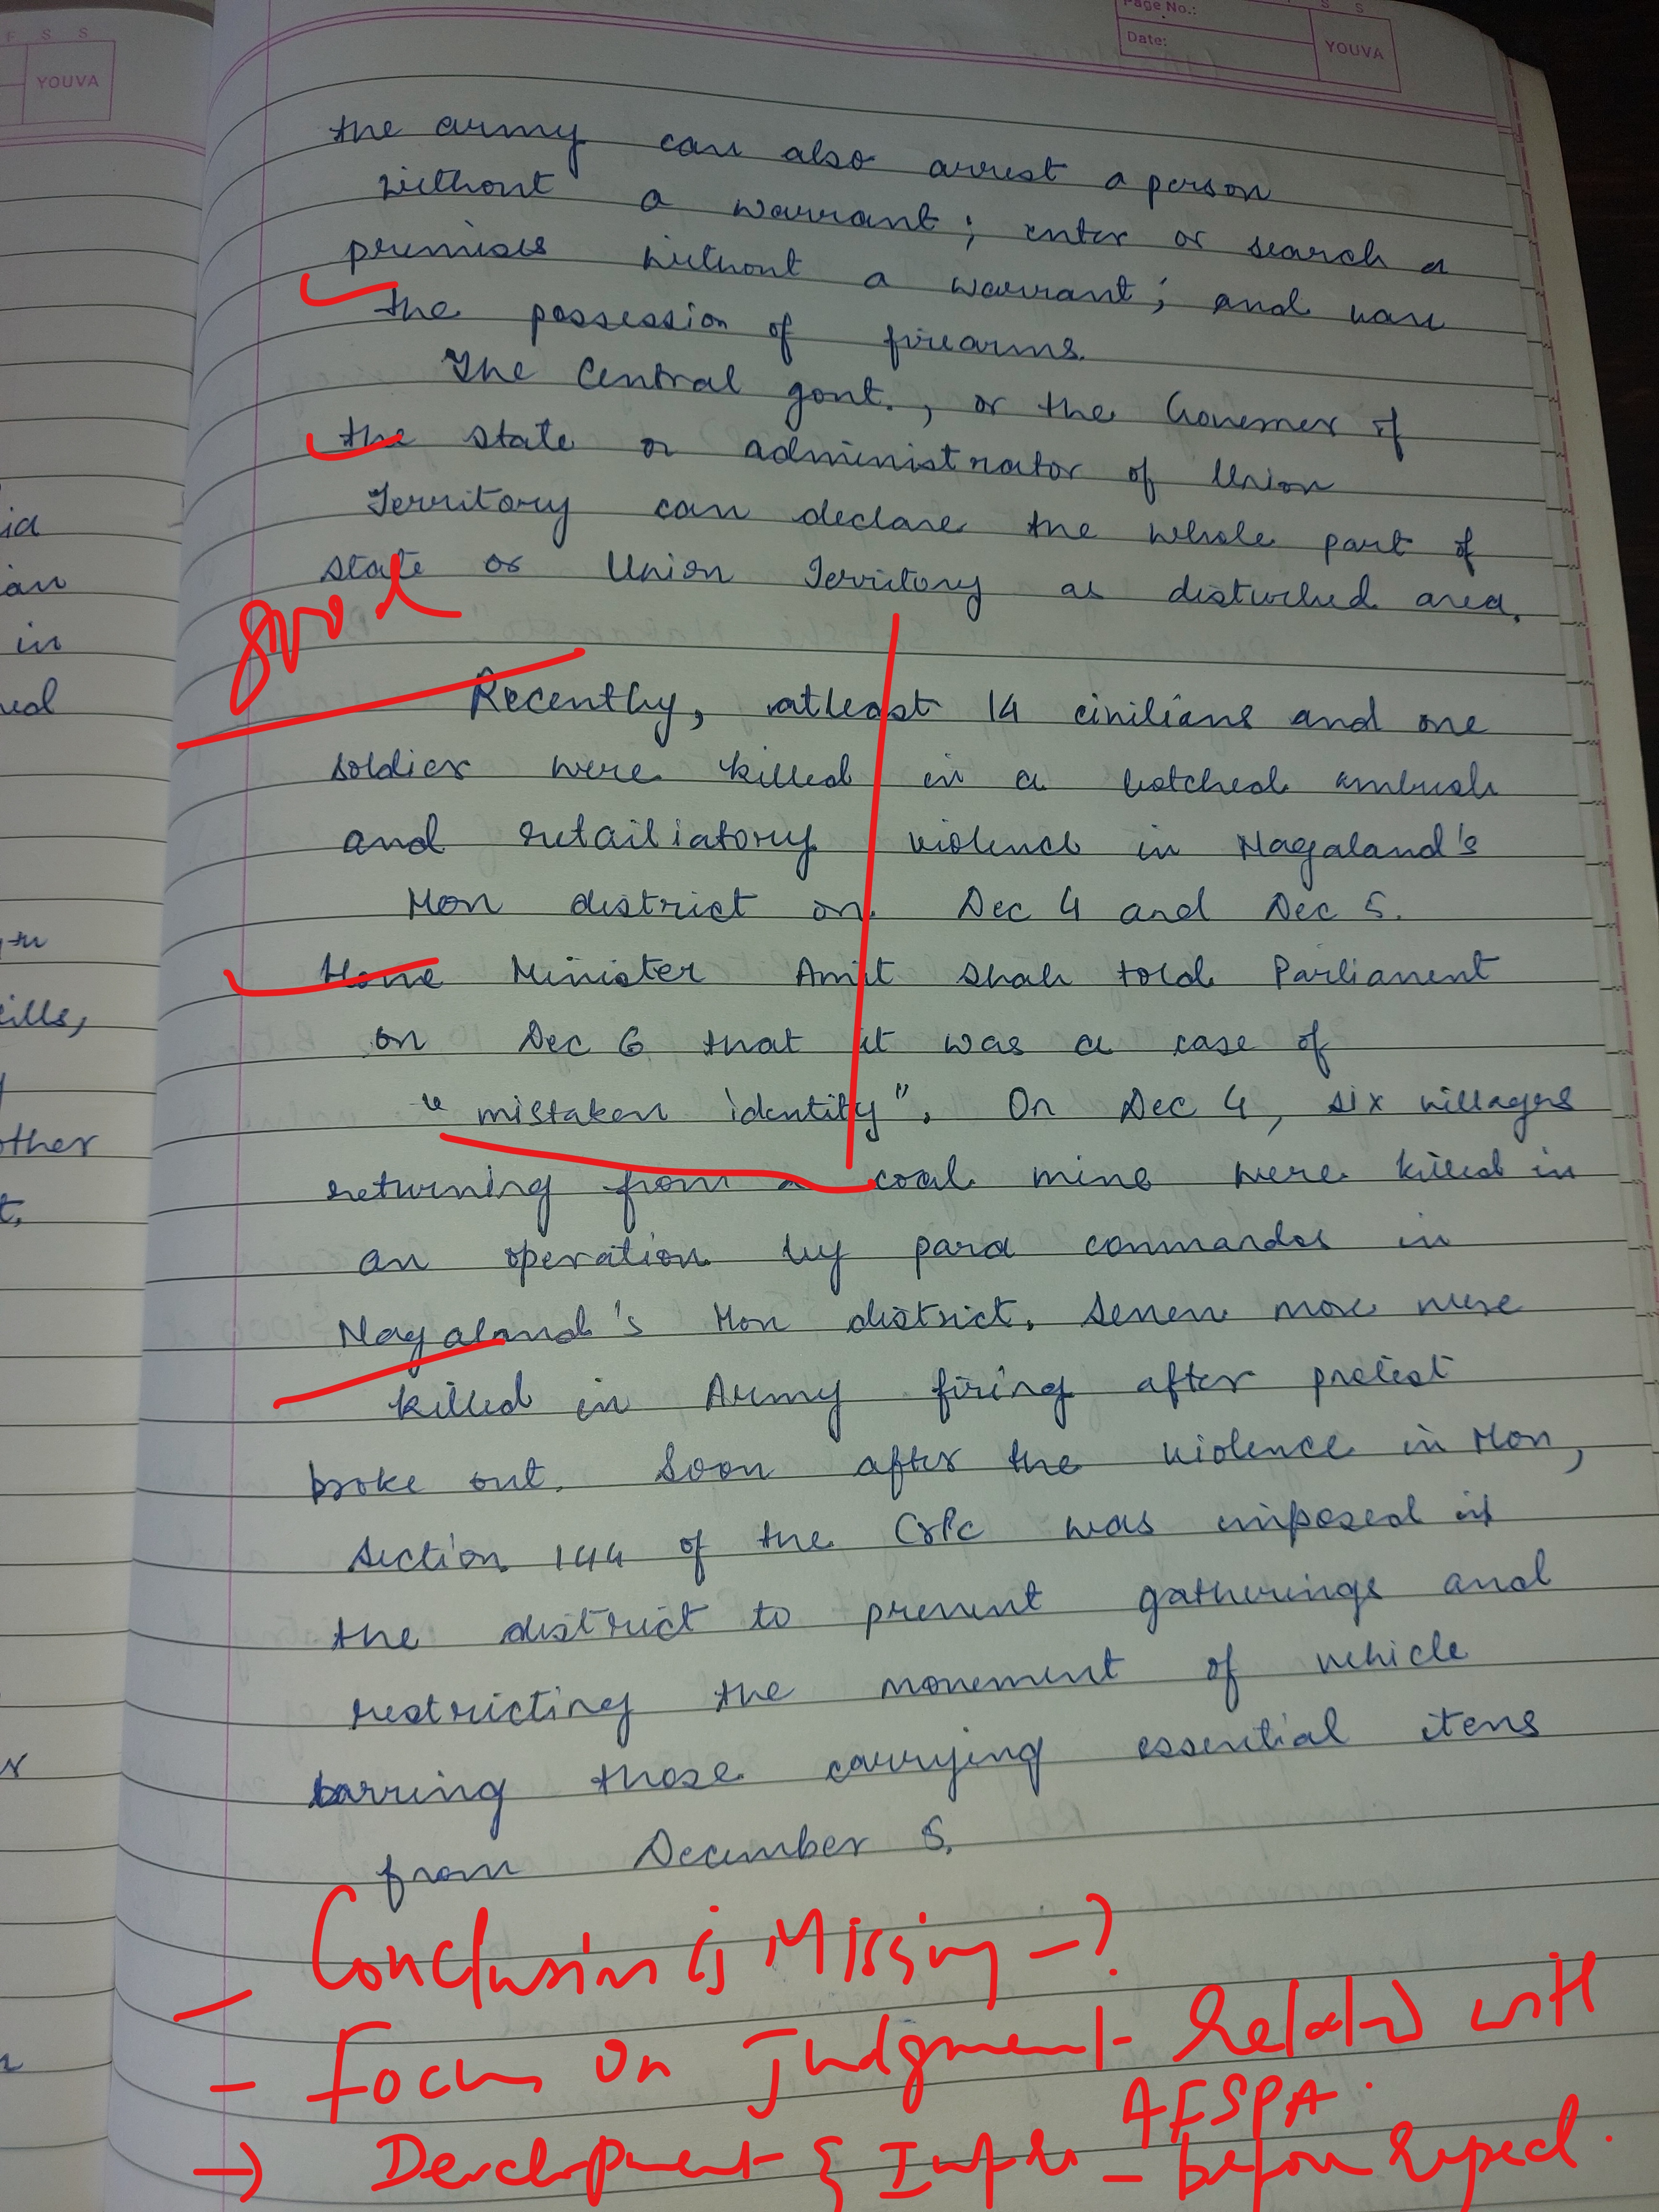 F S S
YOUVA
id
an
in
other
Page No.:
Date:
S S
YOUVA
the army can also arrest a person
without a warrant; enter or search a
premises without a warrant; and ban
the possession of firearms.
The Central govt., or the Governer of
the state or administrator of Union
Territory can declare the whole part of
state or Union Territory as disturbed area.
good
Recently, atleast 14 civilians and one
soldier were killed in a botched ambush
and retailiatory violence in Nagaland's
Mon district on Dec 4 and Dec 5.
Home Minister Amit Shah told Parliament
on Dec 6 that it was a case of
"mistaken identity". On Dec 4, six villagers
returning from a coal mine were killed in
an operation by para commandos in
Nagaland's Mon district. Seven more were
killed in Army firing after protest
broke out. Soon after the violence in Mon,
section 144 of the CrPc was imposed in
the district to prevent gatherings and
restricting the movement of vehicle
barring those carrying essential items
from December 5.
- Conclusion is Missing - ?
- Focus on Judgment Related with
AFSPA.
→ Development & Infra - before Repeal.